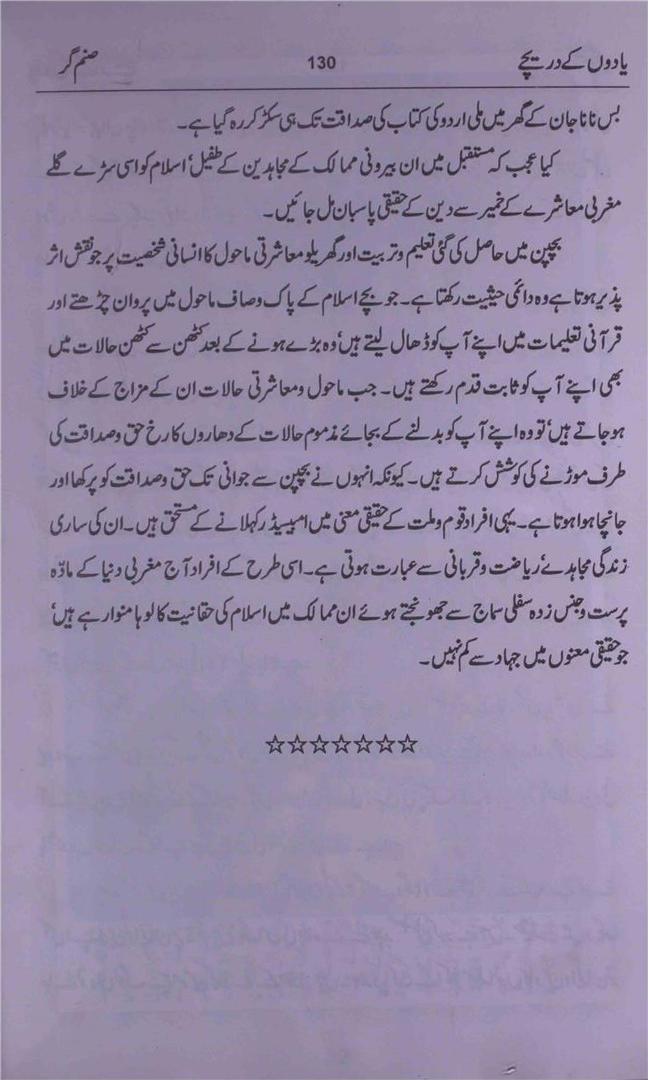 یادوں کے دریچے 130 صنم گر
بس نانا جان کے گھر میں ملی اردو کی کتاب کی صداقت تک ہی سکڑ کر رہ گیا ہے۔
کیا عجب کہ مستقبل میں ان بیرونی ممالک کے مجاہدین کے طفیل‘ اسلام کو اسی سڑے گلے
مغربی معاشرے کے خمیر سے دین کے حقیقی پاسبان مل جائیں۔
بچپن میں حاصل کی گئی تعلیم و تربیت اور گھریلو معاشرتی ماحول کا انسانی شخصیت پر جو نقش اثر
پذیر ہوتا ہے وہ دائمی حیثیت رکھتا ہے۔ جو بچے اسلام کے پاک و صاف ماحول میں پروان چڑھتے اور
قرآنی تعلیمات میں اپنے آپ کو ڈھال لیتے ہیں‘ وہ بڑے ہونے کے بعد کٹھن سے کٹھن حالات میں
بھی اپنے آپ کو ثابت قدم رکھتے ہیں۔ جب ماحول و معاشرتی حالات ان کے مزاج کے خلاف
ہو جاتے ہیں‘ تو وہ اپنے آپ کو بدلنے کے بجائے مذموم حالات کے دھاروں کا رخ حق و صداقت کی
طرف موڑنے کی کوشش کرتے ہیں۔ کیونکہ انہوں نے بچپن سے جوانی تک حق و صداقت کو پرکھا اور
جانچا ہوا ہوتا ہے۔ یہی افراد قوم و ملت کے حقیقی معنی میں امبیسیڈر کہلانے کے مستحق ہیں۔ ان کی ساری
زندگی مجاہدے‘ ریاضت و قربانی سے عبارت ہوتی ہے۔ اسی طرح کے افراد آج مغربی دنیا کے مادّہ
پرست و جنس زدہ سفلی سماج سے جھونجتے ہوئے ان ممالک میں اسلام کی حقانیت کا لوہا منوار ہے ہیں‘
جو حقیقی معنوں میں جہاد سے کم نہیں۔
☆☆☆☆☆☆☆